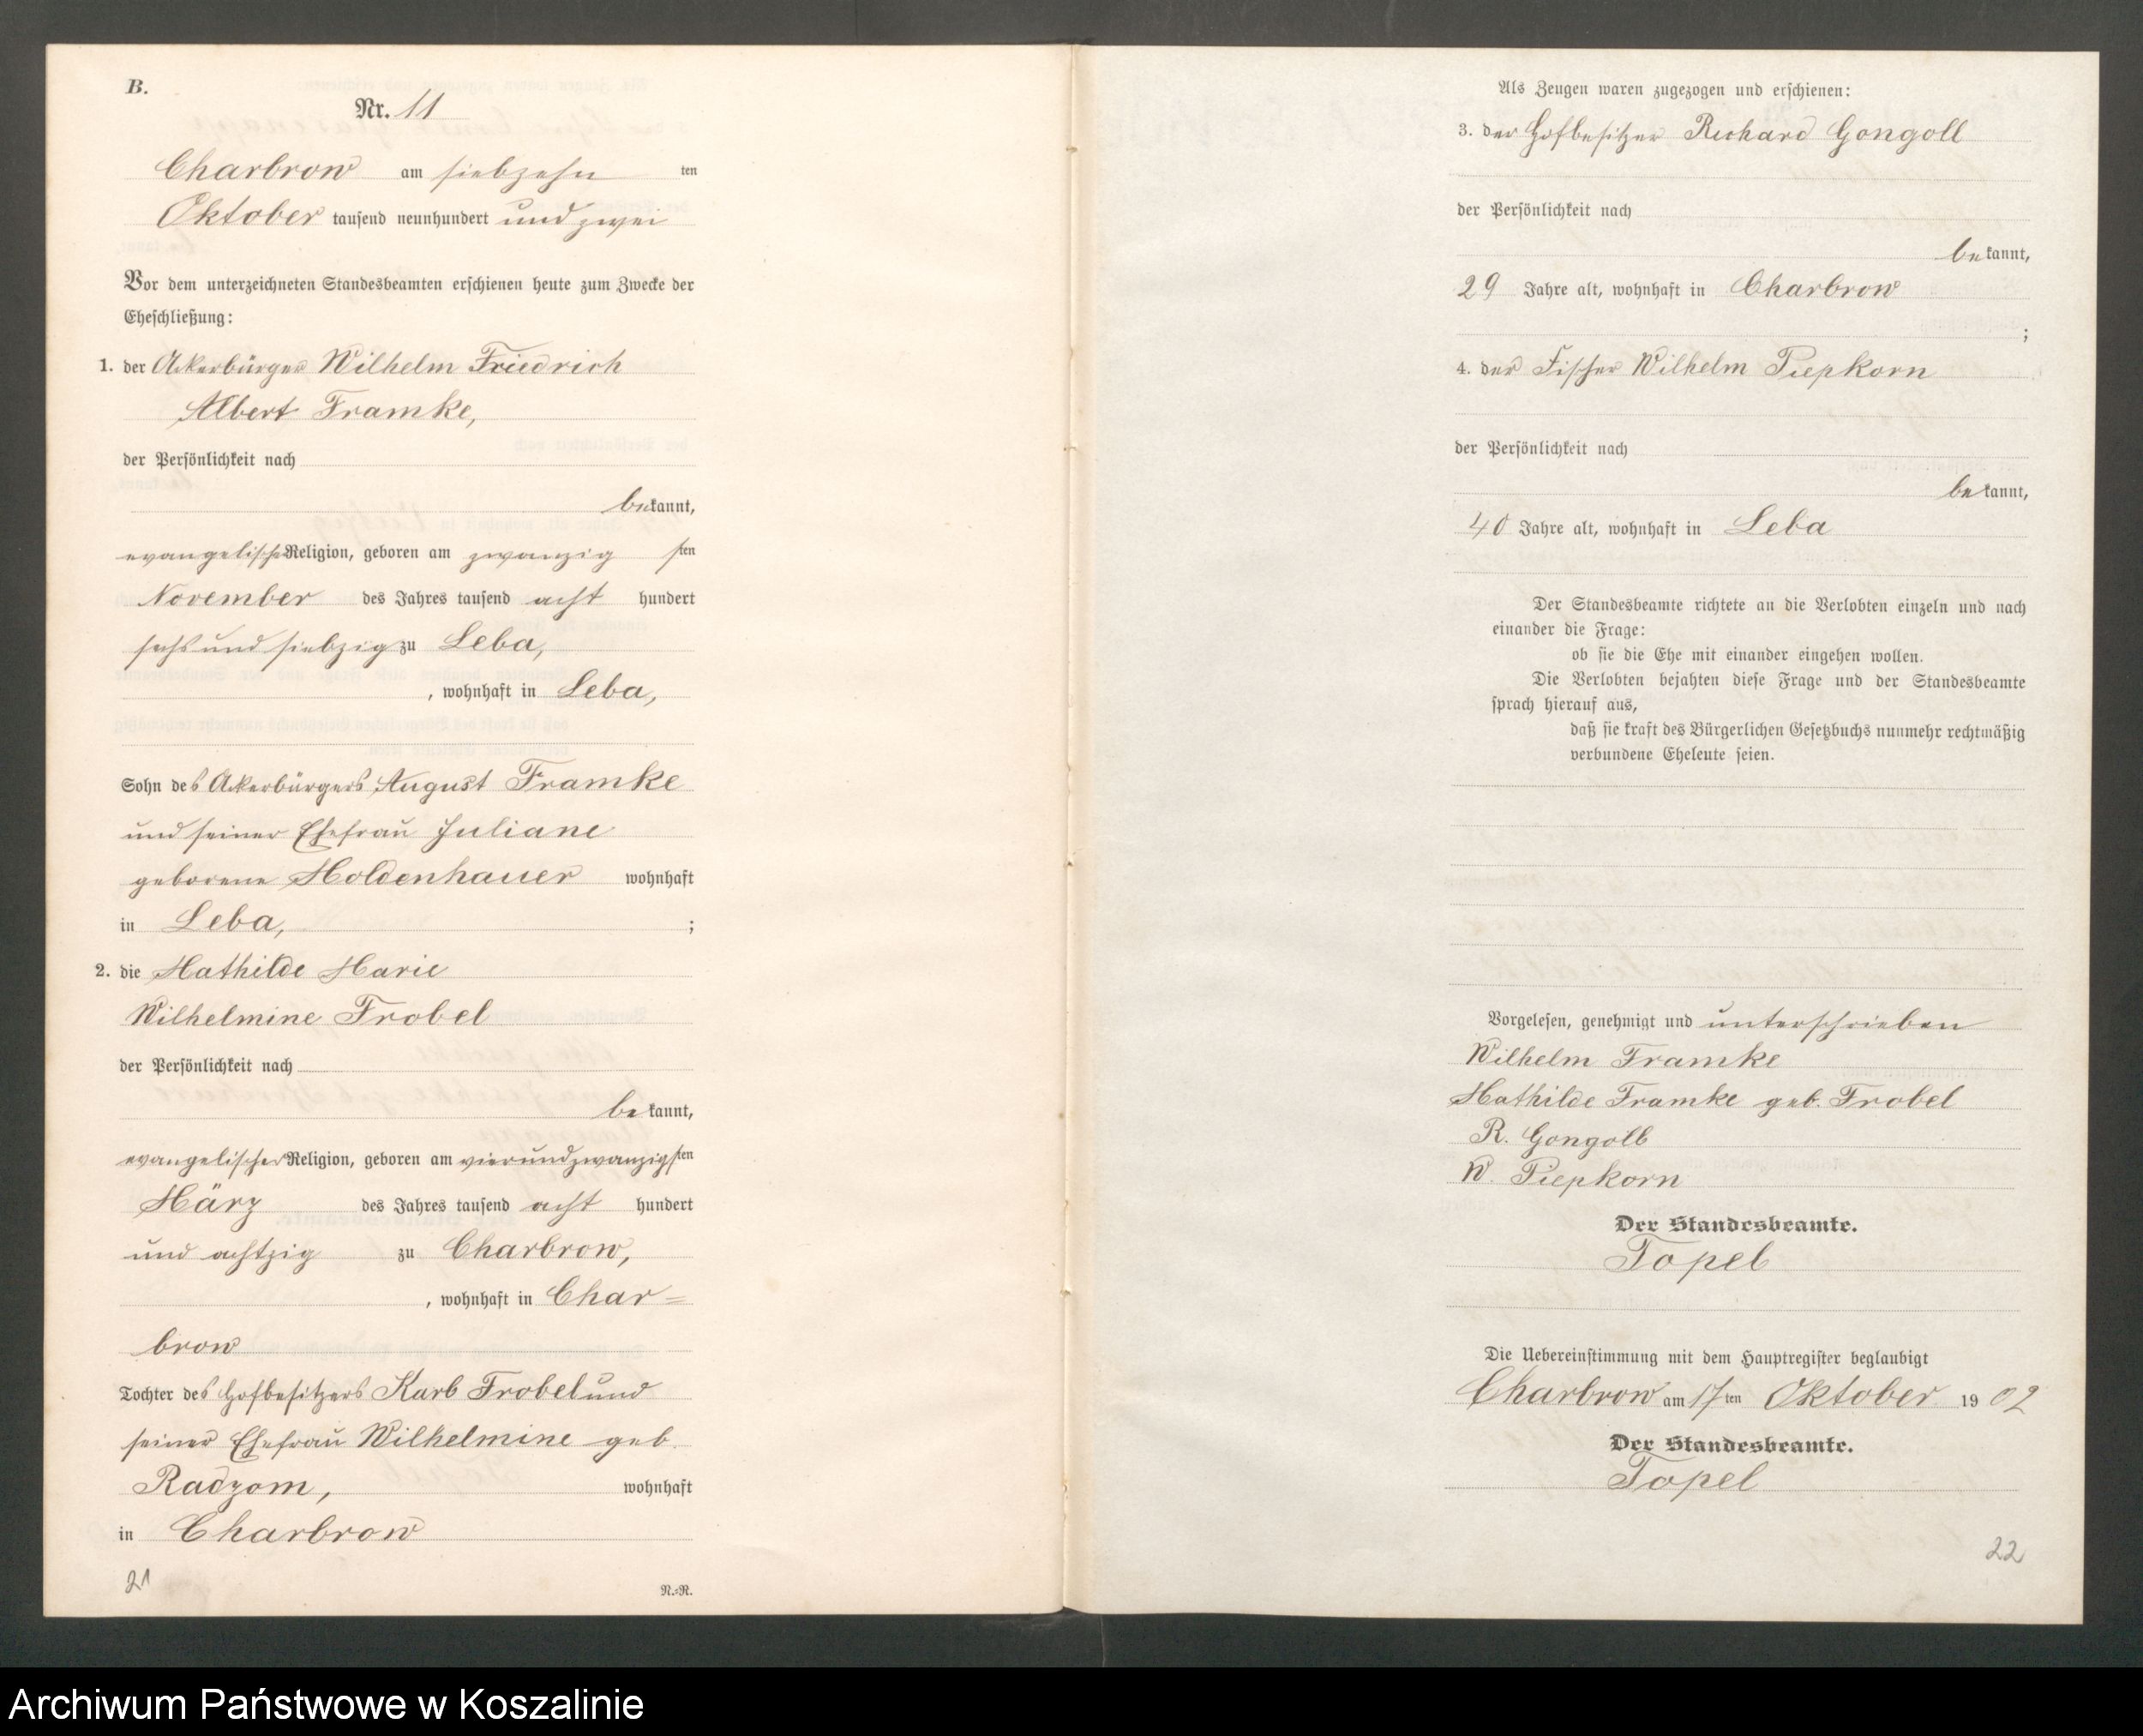 B.
Nr. 11
Charbrow am siebzehn ten
Oktober tausend neunhundert und zwei
Vor dem unterzeichneten Standesbeamten erschienen heute zum Zwecke der
Eheschließung:
1. der Ackerbürger Wilhelm Friedrich
Albert Framke,
der Persönlichkeit nach
bekannt,
evangelischer Religion, geboren am zwanzigsten
November des Jahres tausend acht hundert
sechs und siebzig zu Leba,
, wohnhaft in Leba,
Sohn des Ackerbürgers August Framke
und seiner Ehefrau Juliane
geborene Moldenhauer wohnhaft
in Leba, ;
2. die Mathilde Marie
Wilhelmine Frobel
der Persönlichkeit nach
bekannt,
evangelischer Religion, geboren am vierundzwanzigsten
März des Jahres tausend acht hundert
und achtzig zu Charbrow,
, wohnhaft in Char=
brow
Tochter des Hofbesitzers Karl Frobel und
seiner Ehefrau Wilhelmine geb.
Radzom, wohnhaft
in Charbrow
21
N.=R.
Als Zeugen waren zugezogen und erschienen:
3. der Hofbesitzer Richard Gongoll
der Persönlichkeit nach
bekannt,
29 Jahre alt, wohnhaft in Charbrow
;
4. der Fischer Wilhelm Piepkorn
der Persönlichkeit nach
bekannt,
40 Jahre alt, wohnhaft in Leba
Der Standesbeamte richtete an die Verlobten einzeln und nach
einander die Frage:
ob sie die Ehe mit einander eingehen wollen.
Die Verlobten bejahten diese Frage und der Standesbeamte
sprach hierauf aus,
daß sie kraft des Bürgerlichen Gesetzbuchs nunmehr rechtmäßig
verbundene Eheleute seien.
Vorgelesen, genehmigt und unterschrieben
Wilhelm Framke
Mathilde Framke geb. Frobel
R. Gongoll
W. Piepkorn
Der Standesbeamte.
Topel
Die Uebereinstimmung mit dem Hauptregister beglaubigt
Charbrow am 17ten Oktober 1902
Der Standesbeamte.
Topel
22
Archiwum Państwowe w Koszalinie